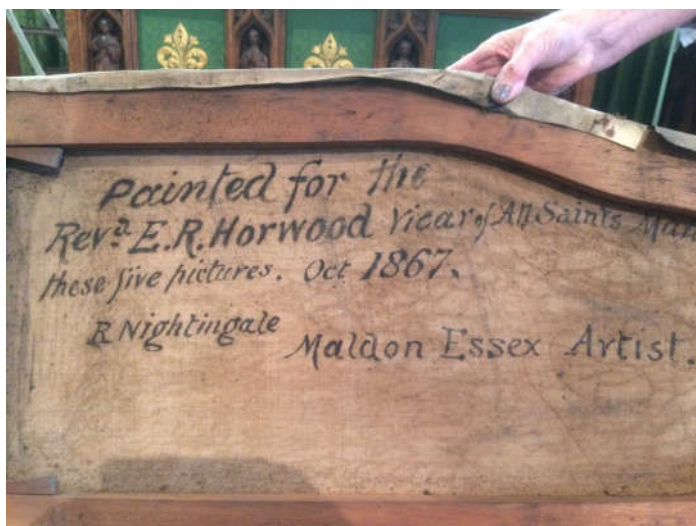 Painted for the
Revd. E.R. Horwood Vicar of All Saints
these five pictures. Oct 1867.
R Nightingale
Maldon Essex Artist.